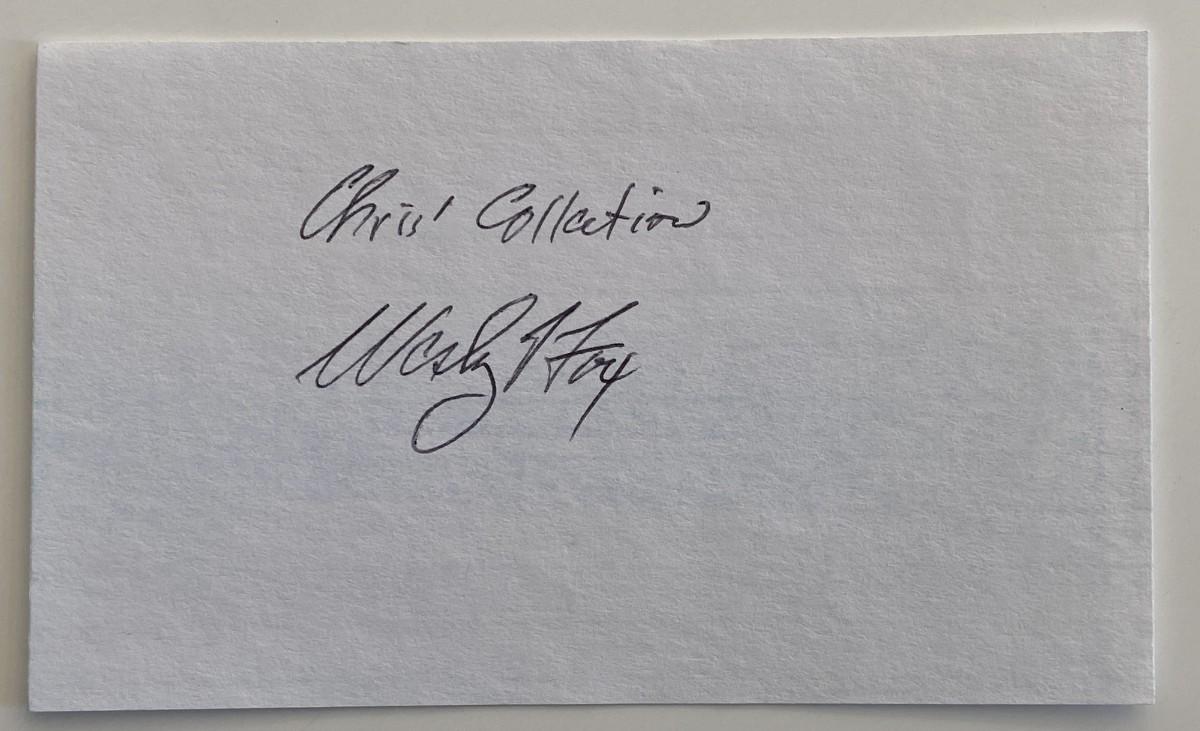 Chris' Collection
Wesley L Fox